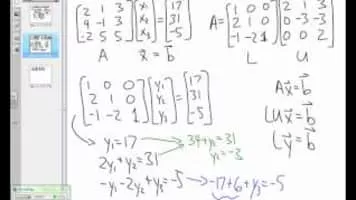 [2 1 3; 4 -1 3; -2 5 5] [x₁; x₂; x₃] = [17; 31; -5]
A x̄ = b̄
A = [1 0 0; 2 1 0; -1 -2 1] [2 1 3; 0 -3 -3; 0 0 2]
L U
[1 0 0; 2 1 0; -1 -2 1] [y₁; y₂; y₃] = [17; 31; -5]
Ax̄ = b̄
LUx̄ = b̄
Lȳ = b̄
y₁ = 17
34 + y₂ = 31
2y₁ + y₂ = 31
y₂ = -3
-y₁ - 2y₂ + y₃ = -5 → -17 + 6 + y₃ = -5